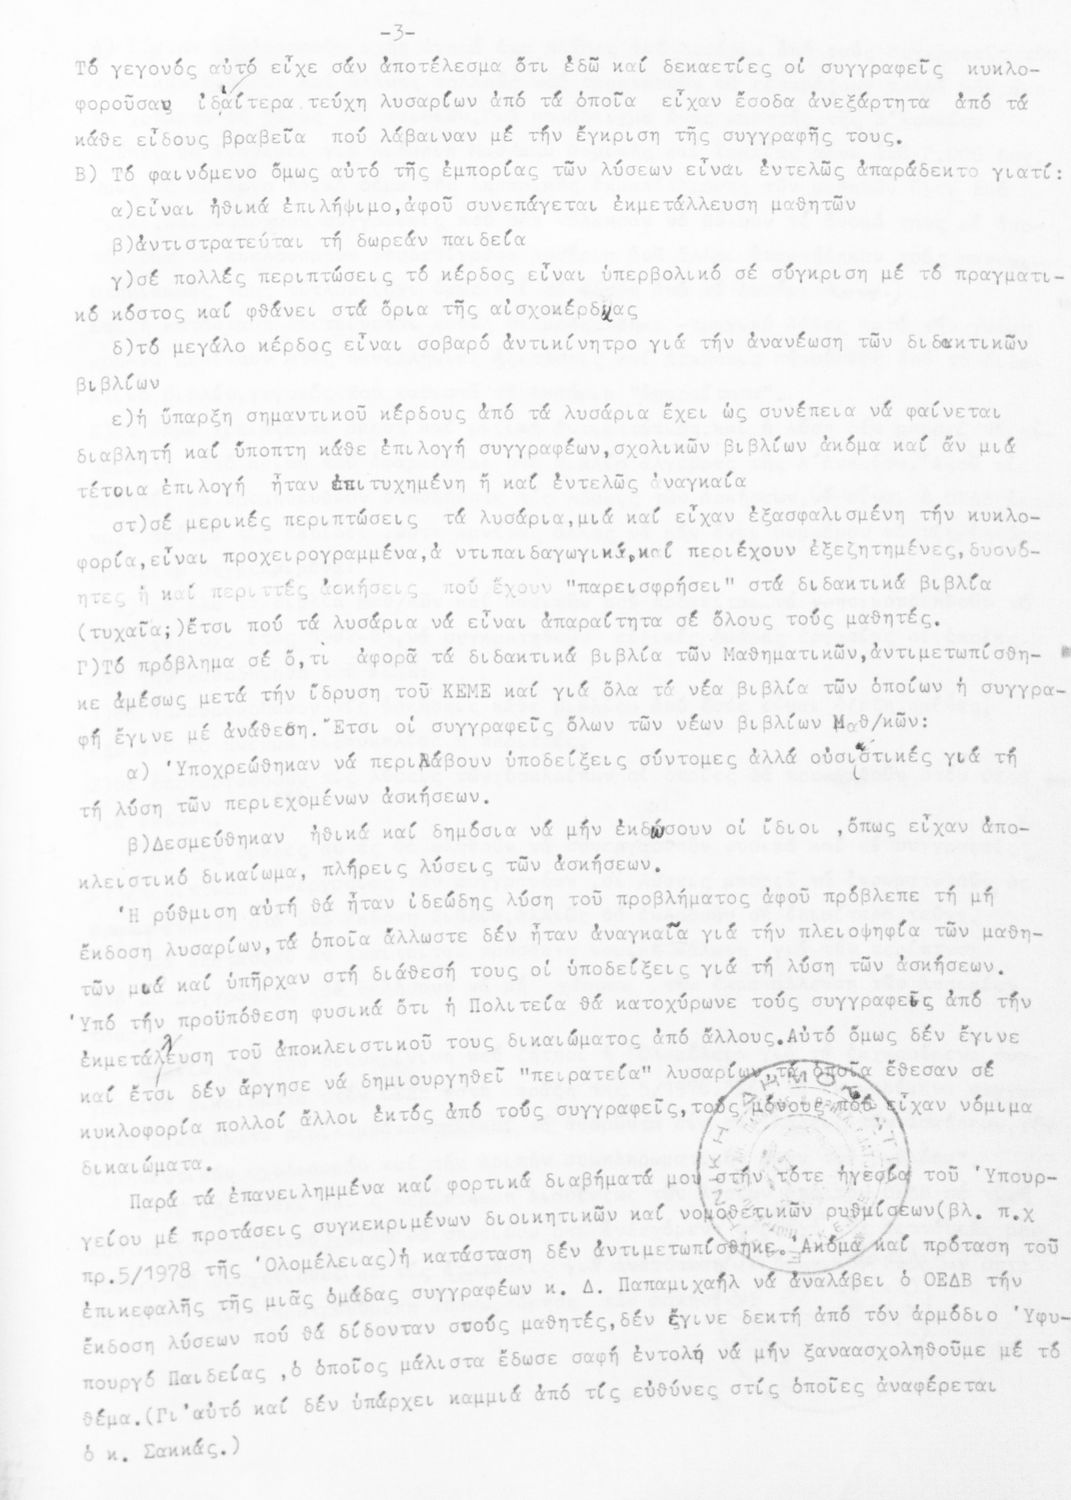 -3-
Τό γεγονός αὐτό εἶχε σάν ἀποτέλεσμα ὅτι ἐδῶ καί δεκαετίες οἱ συγγραφεῖς κυκλο-
φοροῦσαν ἰδιαίτερα τεύχη λυσαρίων ἀπό τά ὁποῖα εἶχαν ἔσοδα ἀνεξάρτητα ἀπό τά
κάθε εἴδους βραβεῖα πού λάβαιναν μέ τήν ἔγκριση τῆς συγγραφῆς τους.
Β) Τό φαινόμενο ὅμως αὐτό τῆς ἐμπορίας τῶν λύσεων εἶναι ἐντελῶς ἀπαράδεκτο γιατί:
α)εἶναι ἠθικά ἐπιλήψιμο,ἀφοῦ συνεπάγεται ἐκμετάλλευση μαθητῶν
β)ἀντιστρατεύται τή δωρεάν παιδεία
γ)σέ πολλές περιπτώσεις τό κέρδος εἶναι ὑπερβολικό σέ σύγκριση μέ τό πραγματι-
κό κόστος καί φθάνει στά ὅρια τῆς αἰσχοκέρδιας
δ)τό μεγάλο κέρδος εἶναι σοβαρό ἀντικίνητρο γιά τήν ἀνανέωση τῶν διδακτικῶν
βιβλίων
ε)ἡ ὕπαρξη σημαντικοῦ κέρδους ἀπό τά λυσάρια ἔχει ὡς συνέπεια νά φαίνεται
διαβλητή καί ὕποπτη κάθε ἐπιλογή συγγραφέων,σχολικῶν βιβλίων ἀκόμα καί ἄν μιά
τέτοια ἐπιλογή ἦταν ἐπιτυχημένη ἤ καί ἐντελῶς ἀναγκαία
στ)σέ μερικές περιπτώσεις τά λυσάρια,μιά καί εἶχαν ἐξασφαλισμένη τήν κυκλο-
φορία,εἶναι προχειρογραμμένα,ἀ ντιπαιδαγωγικά,καί περιέχουν ἐξεζητημένες,δυσνό-
ητες ἤ καί περιττές ἀσκήσεις πού ἔχουν "παρεισφρήσει" στά διδακτικά βιβλία
(τυχαῖα;)ἔτσι πού τά λυσάρια νά εἶναι ἀπαραίτητα σέ ὅλους τούς μαθητές.
Γ)Τό πρόβλημα σέ ὅ,τι ἀφορᾶ τά διδακτικά βιβλία τῶν Μαθηματικῶν,ἀντιμετωπίσθη-
κε ἀμέσως μετά τήν ἵδρυση τοῦ ΚΕΜΕ καί γιά ὅλα τά νέα βιβλία τῶν ὁποίων ἡ συγγρα-
φή ἔγινε μέ ἀνάθεση. Ἔτσι οἱ συγγραφεῖς ὅλων τῶν νέων βιβλίων Μαθ/κῶν:
α) Ὑποχρεώθηκαν νά περιλάβουν ὑποδείξεις σύντομες ἀλλά οὐσιαστικές γιά τή
τή λύση τῶν περιεχομένων ἀσκήσεων.
β)Δεσμεύθηκαν ἠθικά καί δημόσια νά μήν ἐκδώσουν οἱ ἴδιοι ,ὅπως εἶχαν ἀπο-
κλειστικό δικαίωμα, πλήρεις λύσεις τῶν ἀσκήσεων.
Ἡ ρύθμιση αὐτή θά ἦταν ἰδεώδης λύση τοῦ προβλήματος ἀφοῦ πρόβλεπε τή μή
ἔκδοση λυσαρίων,τά ὁποῖα ἄλλωστε δέν ἦταν ἀναγκαῖα γιά τήν πλειοψηφία τῶν μαθη-
τῶν μιά καί ὑπῆρχαν στή διάθεσή τους οἱ ὑποδείξεις γιά τή λύση τῶν ἀσκήσεων.
Ὑπό τήν προϋπόθεση φυσικά ὅτι ἡ Πολιτεία θά κατοχύρωνε τούς συγγραφεῖς ἀπό τήν
ἐκμετάλλευση τοῦ ἀποκλειστικοῦ τους δικαιώματος ἀπό ἄλλους.Αὐτό ὅμως δέν ἔγινε
καί ἔτσι δέν ἄργησε νά δημιουργηθεῖ "πειρατεία" λυσαρίων,τά ὁποῖα ἔθεσαν σέ
κυκλοφορία πολλοί ἄλλοι ἐκτός ἀπό τούς συγγραφεῖς,τούς μόνους πού εἶχαν νόμιμα
δικαιώματα.
Παρά τά ἐπανειλημμένα καί φορτικά διαβήματά μου στήν τότε ἡγεσία τοῦ Ὑπουρ-
γείου μέ προτάσεις συγκεκριμένων διοικητικῶν καί νομοθετικῶν ρυθμίσεων(βλ. π.χ
πρ.5/1978 τῆς Ὁλομέλειας)ἡ κατάσταση δέν ἀντιμετωπίσθηκε. Ἀκόμα καί πρόταση τοῦ
ἐπικεφαλῆς τῆς μιᾶς ὁμάδας συγγραφέων κ. Δ. Παπαμιχαήλ νά ἀναλάβει ὁ ΟΕΔΒ τήν
ἔκδοση λύσεων πού θά δίδονταν στούς μαθητές,δέν ἔγινε δεκτή ἀπό τόν ἁρμόδιο Ὑφυ-
πουργό Παιδείας ,ὁ ὁποῖος μάλιστα ἔδωσε σαφῆ ἐντολή νά μήν ξαναασχοληθοῦμε μέ τό
θέμα.(Γι'αὐτό καί δέν ὑπάρχει καμμιά ἀπό τίς εὐθύνες στίς ὁποῖες ἀναφέρεται
ὁ κ. Σακκάς.)